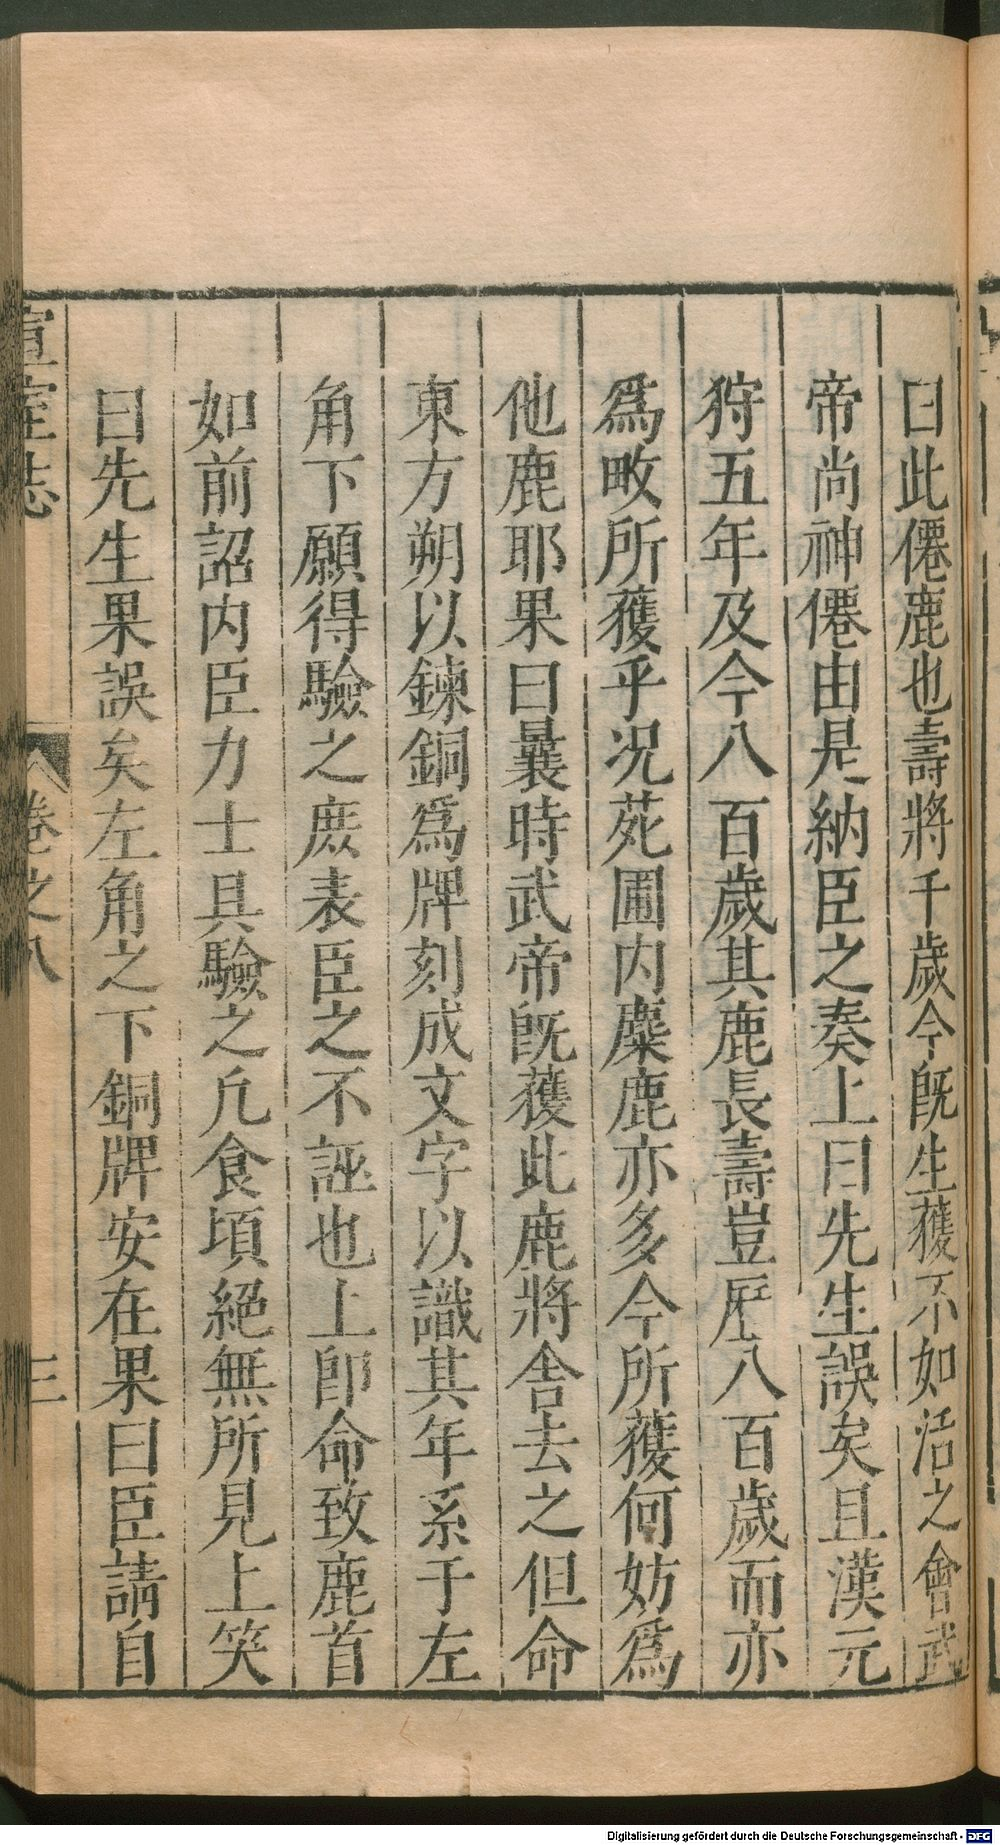 曰此僊鹿也壽將千歲今旣生獲不如活之會武
帝尚神僊由是納臣之奏上曰先生誤矣且漢元
狩五年及今八百歲其鹿長壽豈歷八百歲而亦
爲畋所獲乎况苑囿内麋鹿亦多今所獲何妨爲
他鹿耶果曰曩時武帝旣獲此鹿將舍去之但命
東方朔以鍊銅爲牌刻成文字以識其年系于左
角下願得驗之庶表臣之不誣也上卽命致鹿首
如前詔内臣力士具驗之凢食頃絕無所見上笑
曰先生果誤矣左角之下銅牌安在果曰臣請自
宣室志 卷之八 三
Digitalisierung gefördert durch die Deutsche Forschungsgemeinschaft - DFG